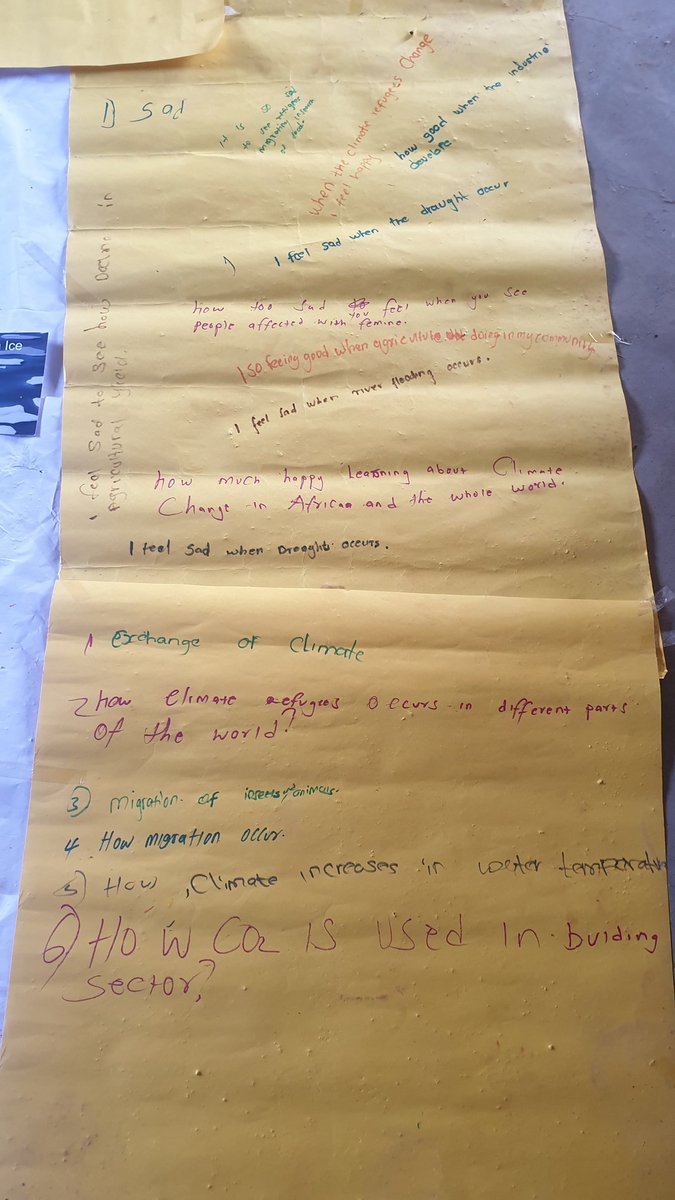 1) Sad
It is so sad
to see refugee
migrating in search
of food.
when the climate refugees Change
I feel happy
how good when the industrie
develope
I feel sad when the draught occur
I feel Sad to See how Decline in
agricultural yield.
how too sad you feel when you see
people affected with femine.
I so feeing good when agriculture doing in my community
I feel sad when river flooding occurs.
how much happy Learning about Climate
Change in African and the whole world.
I feel Sad when Draught occurs.
1 Exchange of Climate
2 how climate refugees occurs in different parts
of the world?
3) Migration of insects animals.
4 How migration occur.
5) How, Climate increases in water temperature
6) How CO2 is used in buiding
sector?
Ice